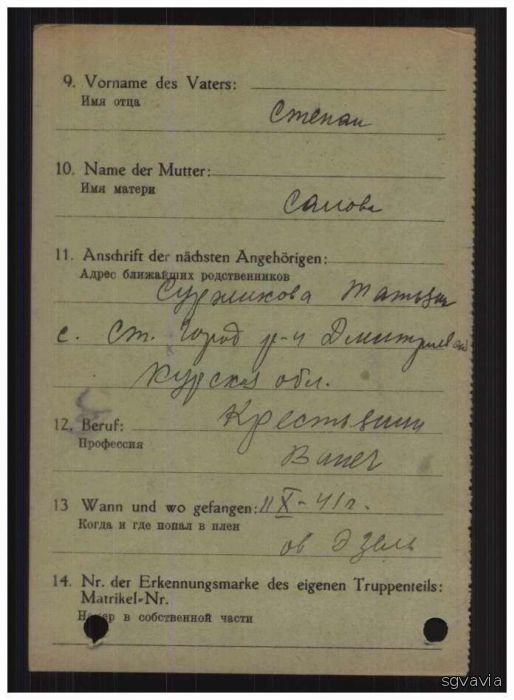 9. Vorname des Vaters:
Имя отца
Степан
10. Name der Mutter:
Имя матери
Салова
11. Anschrift der nächsten Angehörigen:
Адрес ближайших родственников
Суржикова Татьяна
с. Ст. Город р-н Дмитриевский
Курская обл.
12. Beruf:
Крестьянин
Профессия
13 Wann und wo gefangen: 11 X-41г.
Когда и где попал в плен
ов Эзель
14. Nr. der Erkennungsmarke des eigenen Truppenteils:
Matrikel-Nr.
Номер в собственной части
sgvavia